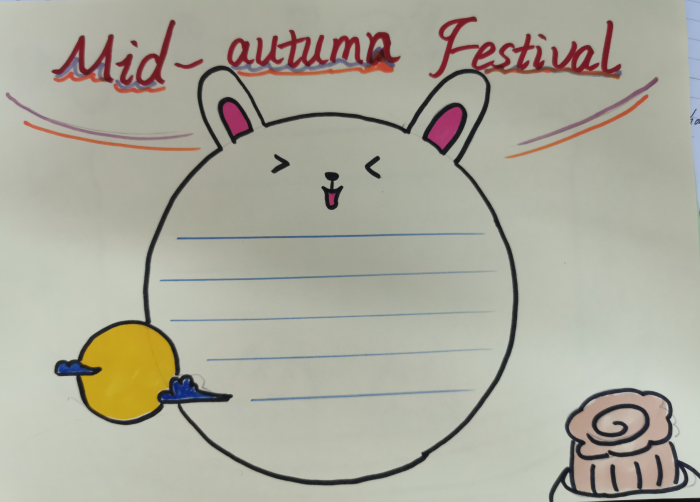 Mid-autumn Festival